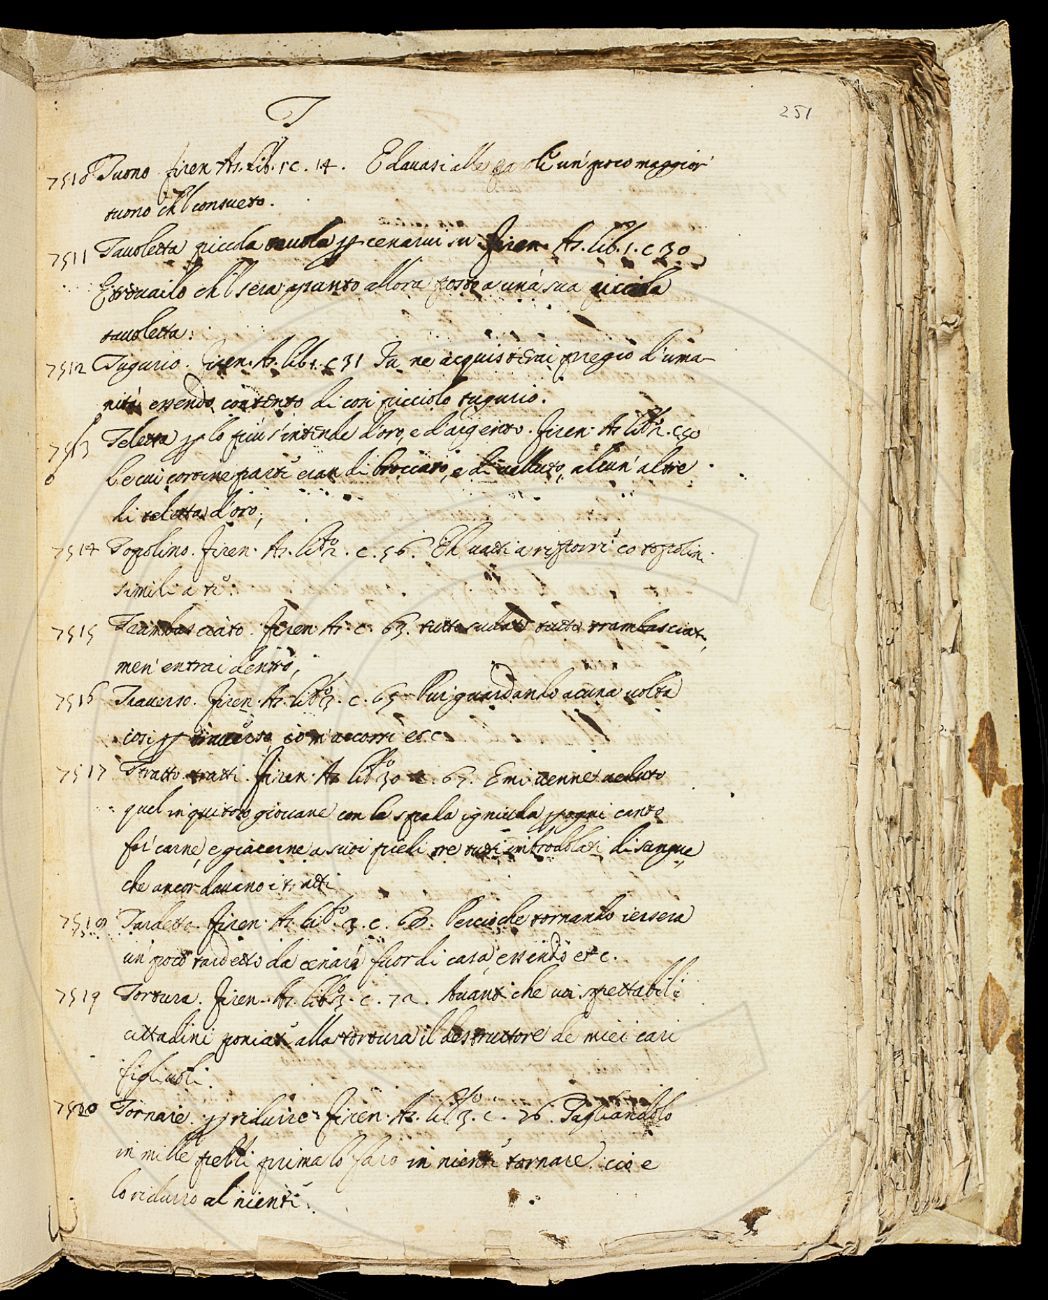 T
251
7510 Tuono. firen. As. lib. 1 c. 14. E davasi alle un' poco maggior
tuono ch'l consueto.
7511 Tavoletta piccola tavola p cenarvi su firen. As. lib. 1. c 30
E trovailo ch'l sera apunto allora posto a una sua piccola
tavoletta:
7512 Tugurio. firen. As. lib. 1. c 31 Tu ne acquisterai pregio d'uma-
nità essendo contento di così picciolo tugurio.
7513 Teletta p lo più s'intende d'oro, e d'argento. firen. As. lib. 2. c 50
Le cui cortine parte eran di broccato, e di velluto, alcun' altre
di teletta d'oro;
7514 Topolino. firen. As. lib. 2. c. 56. Eh vatti a riporre co topolin
simili a te.
7515 Trambasciato. firen. As. c. 63. tutto sudato tutto trambasciato,
men' entrai dentro;
7516 Traverso. firen. As. lib. 3. c. 65 Pur guardando alcuna volta
così p traverso io m'accorsi etc
7517 Tratto tratti. firen. As. lib. 3 c. 67. E mi venne veduto
quel giovane con la spada ignuda p ogni canto
far carne, e giacerne a suoi piedi tre tutti imbrodolati di sangue
che ancor davano i tratti
7518 Tardetto. firen. As. lib. 3. c. 68. Percioche tornando iersera
un poco tardetto da cenar fuor di casa, essendo etc.
7519 Tortura. firen. As. lib. 3. c. 72. Avanti che voi spettabili
cittadini poniate alla tortura il destruttore de miei cari
figliuoli.
7520 Tornare. p ridurre firen. As. lib. 3. c. 76. Tagliandolo
in mille pezzi prima lo farò in niente tornare. cio e
lo ridurrò al niente.